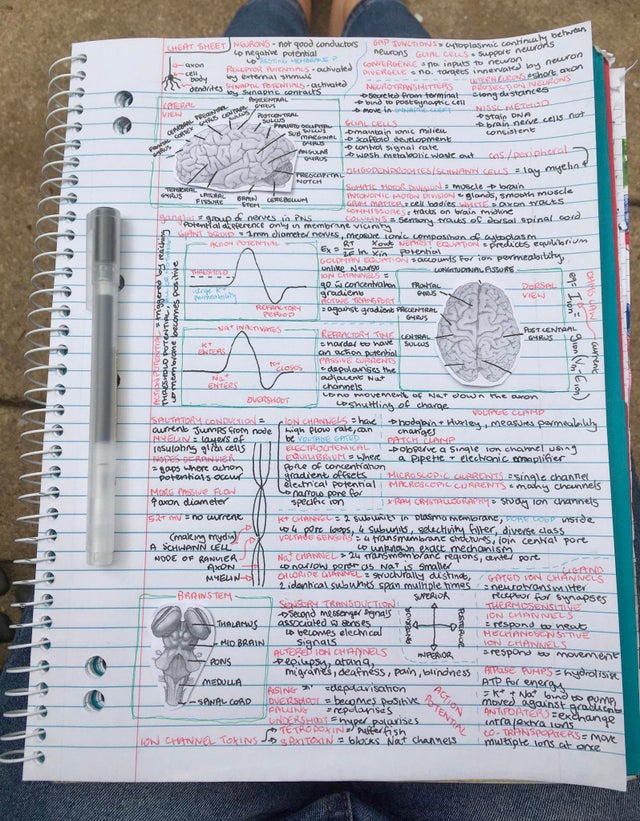 CHEAT SHEET
axon
cell body
dendrites
NEURONS - not good conductors
↳ negative potential
↳ RESTING MEMBRANE P
RECEPTOR POTENTIALS - activated by external stimulus
SYNAPTIC POTENTIALS - activated by synaptic contacts
GAP JUNCTIONS = cytoplasmic continuity between neurons
GLIAL CELLS = support neurons
CONVERGENCE = no. inputs to neuron
DIVERGENCE = no. targets innervated by neuron
INTERNEURONS = short axon
PROJECTION NEURONS
= long distances
NEUROTRANSMITTERS
→ secreted from terminal
→ bind to postsynaptic cell
→ move in SYNAPTIC CLEFT
NISSL METHOD
→ stain DNA
→ brain nerve cells not consistent
GLIAL CELLS
→ maintain ionic milieu
→ scaffold development
→ control signal rate
→ wash metabolic waste out
CNS/peripheral
OLIGODENDROCYTES/SCHWANN CELLS = lay myelin
LATERAL VIEW
FRONTAL GYRUS
CEREBRAL CORTEX
PRECENTRAL GYRUS
CENTRAL SULCUS
POSTCENTRAL GYRUS
POSTCENTRAL SULCUS
PARIETO OCCIPITAL SULCUS
MARGINAL GYRUS
ANGULAR GYRUS
PREOCCIPITAL NOTCH
CEREBELLUM
BRAIN STEM
LATERAL FISSURE
TEMPORAL GYRUS
SOMATIC MOTOR DIVISION = muscle → brain
AUTONOMIC MOTOR DIVISION = glands, smooth muscle
GRAY MATTER = cell bodies WHITE = axon tracts
COMMISSURES = tracts on brain midline
COLUMNS = sensory tracts of dorsal spinal cord
GANGLIA = group of nerves in PNS
↳ Potential difference only in membrane vicinity
GIANT SQUID = 1mm diameter nerves, measure ionic composition of cytoplasm
ACTION POTENTIAL = triggered by reaching THRESHOLD POTENTIAL
↳ membrane becomes positive
ACTION POTENTIAL
THRESHOLD
REFRACTORY PERIOD
NERNST EQUATION = predicts equilibrium potential
GOLDMAN EQUATION = accounts for ion permeability, unlike Nernst
ION CHANNELS = go in concentration gradient
ACTIVE TRANSPORT = against gradient
LONGITUDINAL FISSURE
DORSAL VIEW
FRONTAL GYRUS
PRECENTRAL GYRUS
CENTRAL SULCUS
POST CENTRAL GYRUS
Na+ INACTIVATES
K+ ENTERS
Na+ ENTERS
K+ CLOSES
OVERSHOOT
REFRACTORY TIME
= harder to have an action potential
PASSIVE CURRENTS
= depolarises the adjacent Na+ channels
↳ no movement of Na+ down the axon
↳ shuttling of charge
SALTATORY CONDUCTION = current jumps from node
MYELIN = layers of insulating glial cells
NODES OF RANVIER = gaps where action potentials occur
MORE PASSIVE FLOW
↑ axon diameter
52+ mV = no current
(making myelin)
A SCHWANN CELL
NODE OF RANVIER
AXON
MYELIN
ION CHANNELS = have high flow rate, can be VOLTAGE GATED
ELECTROCHEMICAL EQUILIBRIUM = where force of concentration gradient offsets electrical potential
↳ narrow pore for specific ion
VOLTAGE CLAMP
→ Hodgkin + Huxley, measures permeability changes
PATCH CLAMP
→ observe a single ion channel using a pipette + electronic amplifier
MICROSCOPIC CURRENTS = single channel
MACROSCOPIC CURRENTS = many channels
X-RAY CRYSTALLOGRAPHY = study ion channels
K+ CHANNEL = 2 subunits in plasma membrane, PORE LOOP inside
↳ 4 pore loops, 4 subunits, selectivity filter, diverse class
VOLTAGE SENSORS = 4 transmembrane structures, join central pore
↳ unknown exact mechanism
Na+ CHANNEL = 24 transmembrane regions, center pore
↳ narrow pore as Na+ is smaller
CHLORIDE CHANNEL = structurally distinct, 2 identical subunits span multiple times
BRAINSTEM
THALAMUS
MID BRAIN
PONS
MEDULLA
SPINAL CORD
SENSORY TRANSDUCTION
→ second messenger signals associated w senses
↳ becomes electrical signals
SUPERIOR
ANTERIOR
POSTERIOR
INFERIOR
ALTERED ION CHANNELS
= epilepsy, ataxia, migraines, deafness, pain, blindness
LIGAND GATED ION CHANNELS
= neurotransmitter receptor for synapses
THERMOSENSITIVE ION CHANNELS
= respond to heat
MECHANOSENSITIVE ION CHANNELS
= respond to movement
ATPASE PUMPS = hydrolise ATP for energy
= K+ + Na+ bind to pump, moved against gradients
ANTIPORTERS = exchange intra/extra ions
CO-TRANSPORTERS = move multiple ions at once
RISING = depolarisation
OVERSHOOT = becomes positive
FALLING = repolarises
UNDERSHOOT = hyper polarises
ACTION POTENTIAL
ION CHANNEL TOXINS
→ TETRODOXIN = pufferfish
→ SAXITOXIN = blocks Na+ channels